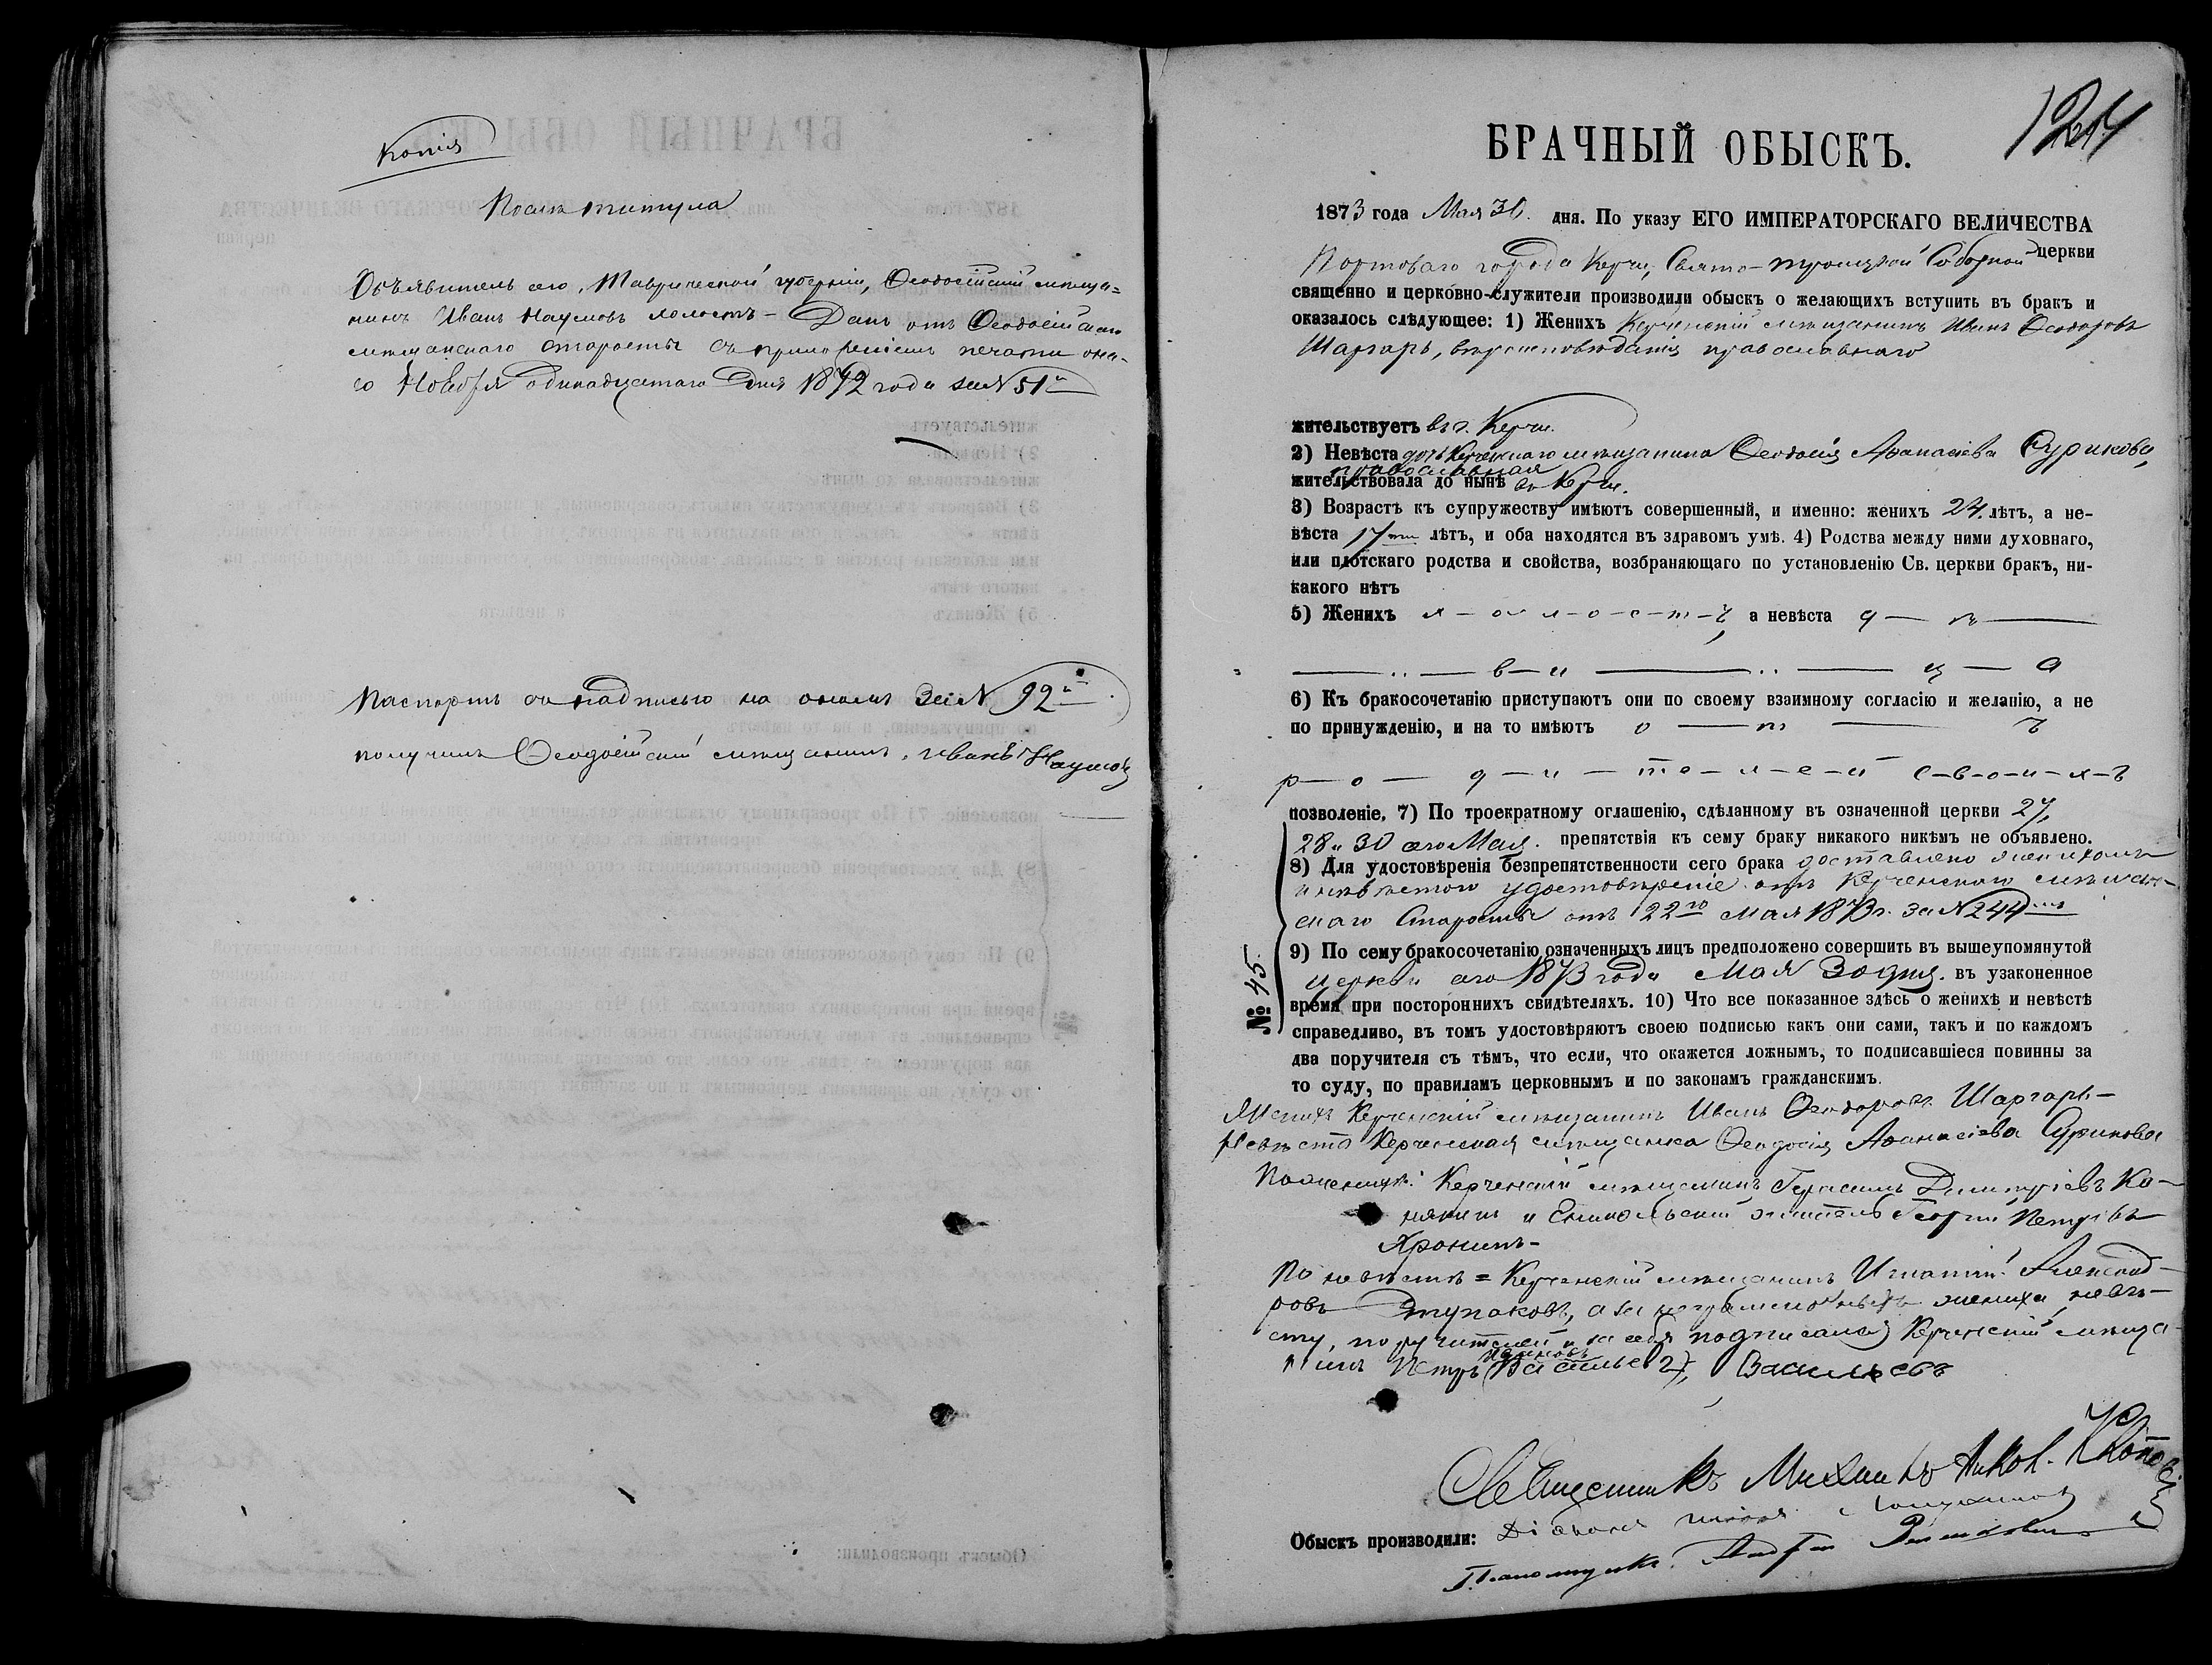 Копія
Послѣ титула
Объявитель сего, Таврической губерніи, Ѳеодосійскій мѣща=
нинъ Иванъ Наумовъ холостъ – Данъ отъ Ѳеодосійскаго
мѣщанскаго старосты съ приложеніемъ печати она-
го Ноября одинадцатаго дня 1872 года за № 51
Паспортъ съ надписью на ономъ за № 92
получилъ Ѳеодосійскій мѣщанинъ, Иванъ Наумовъ
124
БРАЧНЫЙ ОБЫСКЪ.
1873 года Мая 30. дня. По указу ЕГО ИМПЕРАТОРСКАГО ВЕЛИЧЕСТВА
Портоваго города Керчи, Свято-Троицкой Соборной церкви
священно и церковно-служители производили обыскъ о желающихъ вступить въ бракъ и
оказалось слѣдующее: 1) Женихъ Керченскій мѣщанинъ Иванъ Ѳеодоровъ
Шаргарь, вѣроисповѣданія православнаго
жительствуетъ въ г. Керчи.
2) Невѣста дочь Керченскаго мѣщанина Ѳеодосія Аѳанасіева Сурикова,
православная
жительствовала до нынѣ въ Керчи.
3) Возрастъ къ супружеству имѣютъ совершенный, и именно: женихъ 24. лѣтъ, а не-
вѣста 17ти лѣтъ, и оба находятся въ здравомъ умѣ. 4) Родства между ними духовнаго,
или плотскаго родства и свойства, возбраняющаго по установленію Св. церкви бракъ, ни-
какого нѣтъ
5) Женихъ х-о-л-о-с-т-ъ, а невѣста д — ѣ —
— в-и — ц — а
6) Къ бракосочетанію приступаютъ они по своему взаимному согласію и желанію, а не
по принужденію, и на то имѣютъ о — т — ъ
р-о — д-и-те-л-е-й с-в-о-и-х-ъ
позволеніе. 7) По троекратному оглашенію, сдѣланному въ означенной церкви 27,
28 и 30 сего Мая. препятствія къ сему браку никакого никѣмъ не объявлено.
8) Для удостовѣренія безпрепятственности сего брака доставлено женихомъ
и невѣстою удостовѣреніе отъ Керченскаго мѣщан-
скаго Старосты отъ 22го Мая 1873 г. за № 244
9) По сему бракосочетанію означенныхъ лицъ предположено совершить въ вышеупомянутой
церкви сего 1873 года Мая 30 дня. въ узаконенное
№ 45.
время при постороннихъ свидѣтеляхъ. 10) Что все показанное здѣсь о женихѣ и невѣстѣ
справедливо, въ томъ удостовѣряютъ своею подписью какъ они сами, такъ и по каждомъ
два поручителя съ тѣмъ, что если, что окажется ложнымъ, то подписавшіеся повинны за
то суду, по правиламъ церковнымъ и по законамъ гражданскимъ.
Женихъ Керченскій мѣщанинъ Иванъ Ѳеодоровъ Шаргарь –
Невѣста Керченская мѣщанка Ѳеодосія Аѳанасіева Сурикова
По женихѣ: Керченскій мѣщанинъ Герасимъ Димитріевъ Ко-
някинъ и Еникольскій житель Георгій Петровъ
Хронинъ –
По невѣстѣ = Керченскій мѣщанинъ Игнатій Александ-
ровъ, а за неграмотныхъ жениха, невѣ-
сту, поручителей и за себя подписался Керченскій мѣща-
нинъ Петръ (Васильевъ), Васильевъ
Священникъ Михаилъ
Обыскъ производили: Діаконъ
Пономарь Андрей